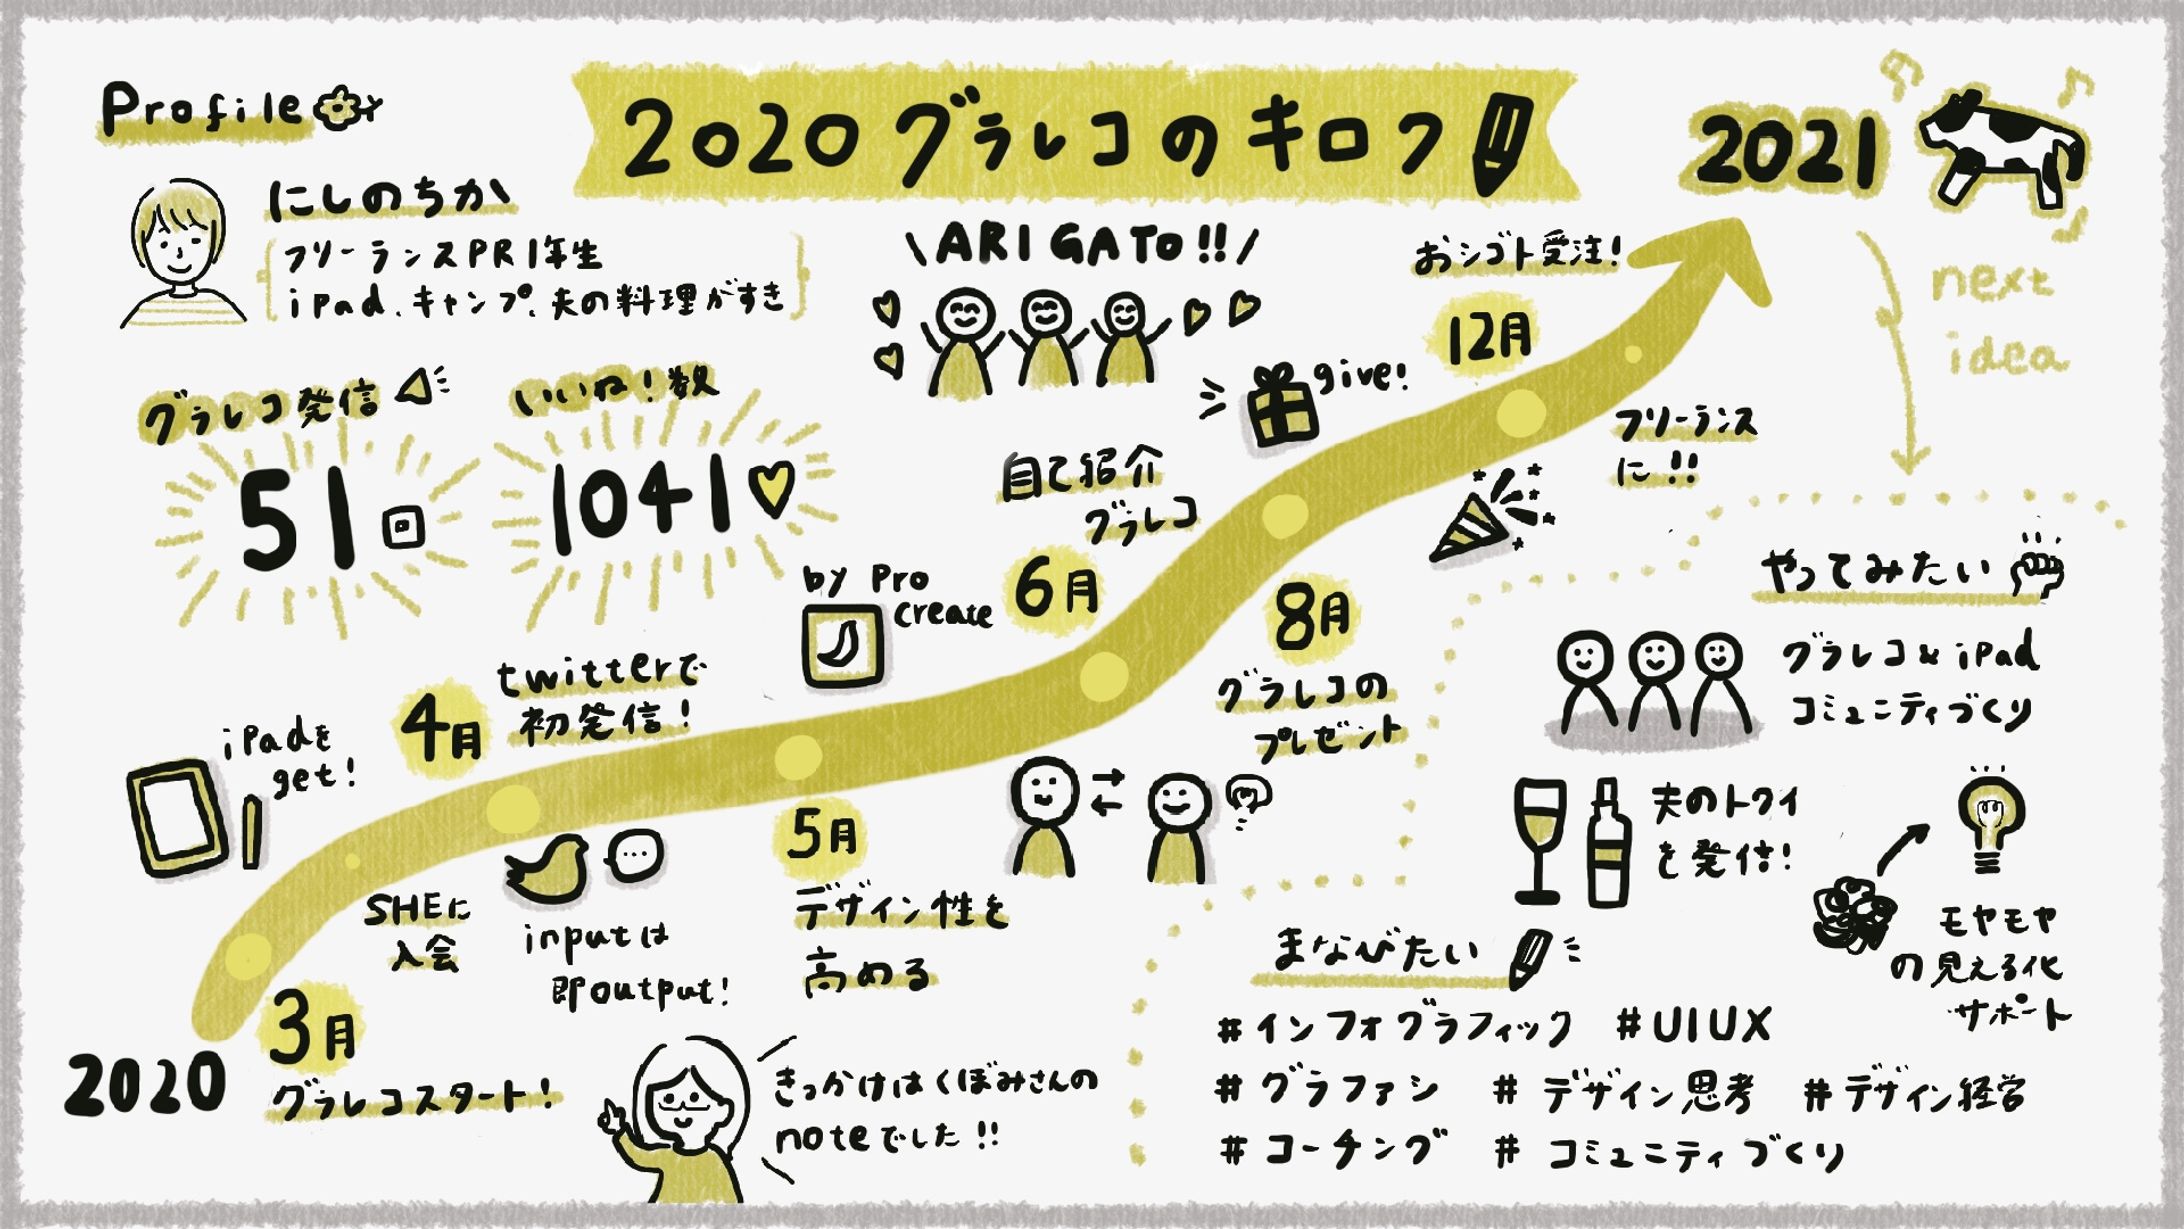 Profile
2020 グラレコのキロク
2021
にしのちか
フリーランスPR1年生
iPad、キャンプ、夫の料理がすき
\ARIGATo!!/
グラレコ発信
51回
いいね!数
1041
next
idea
2020
3月
グラレコスタート!
きっかけはくぼみさんの
noteでした!!
iPadを
get!
SHEに
入会
4月
twitterで
初発信!
inputは
即output!
5月
デザイン性を
高める
by Pro
create
6月
自己紹介
グラレコ
8月
グラレコの
プレゼント
give!
12月
おシゴト受注!
フリーランス
に!!
やってみたい
グラレコ&iPad
コミュニティづくり
夫のトクイ
を発信!
モヤモヤ
の見える化
サポート
まなびたい
#インフォグラフィック #UIUX
#グラファシ #デザイン思考 #デザイン経営
#コーチング #コミュニティづくり